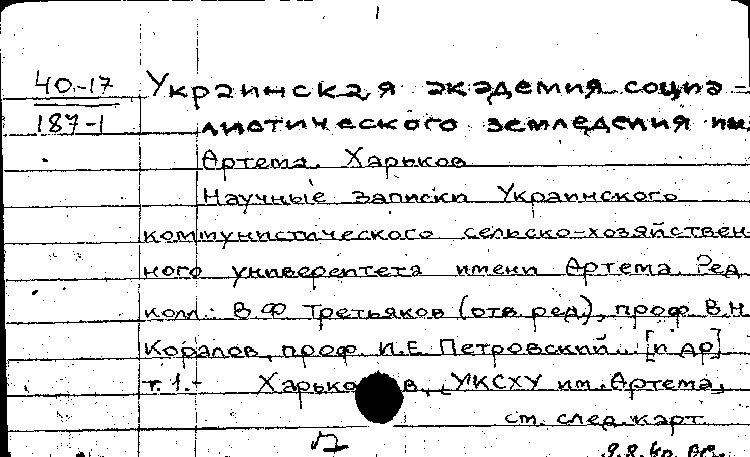 40-17 Украинская академия социа-
187-1 листического земледелия им.
Артема. Харьков
Научные записки Украинского
коммунистического сельско-хозяйствен-
ного университета имени Артема. Ред.
колл.: В.Ф. Третьяков (отв. ред.), проф. В.Н.
Коралов, проф. И.Е. Петровский... [и др]
т. 1.- Харьков, УКСХУ им. Артема,
см. след. карт.